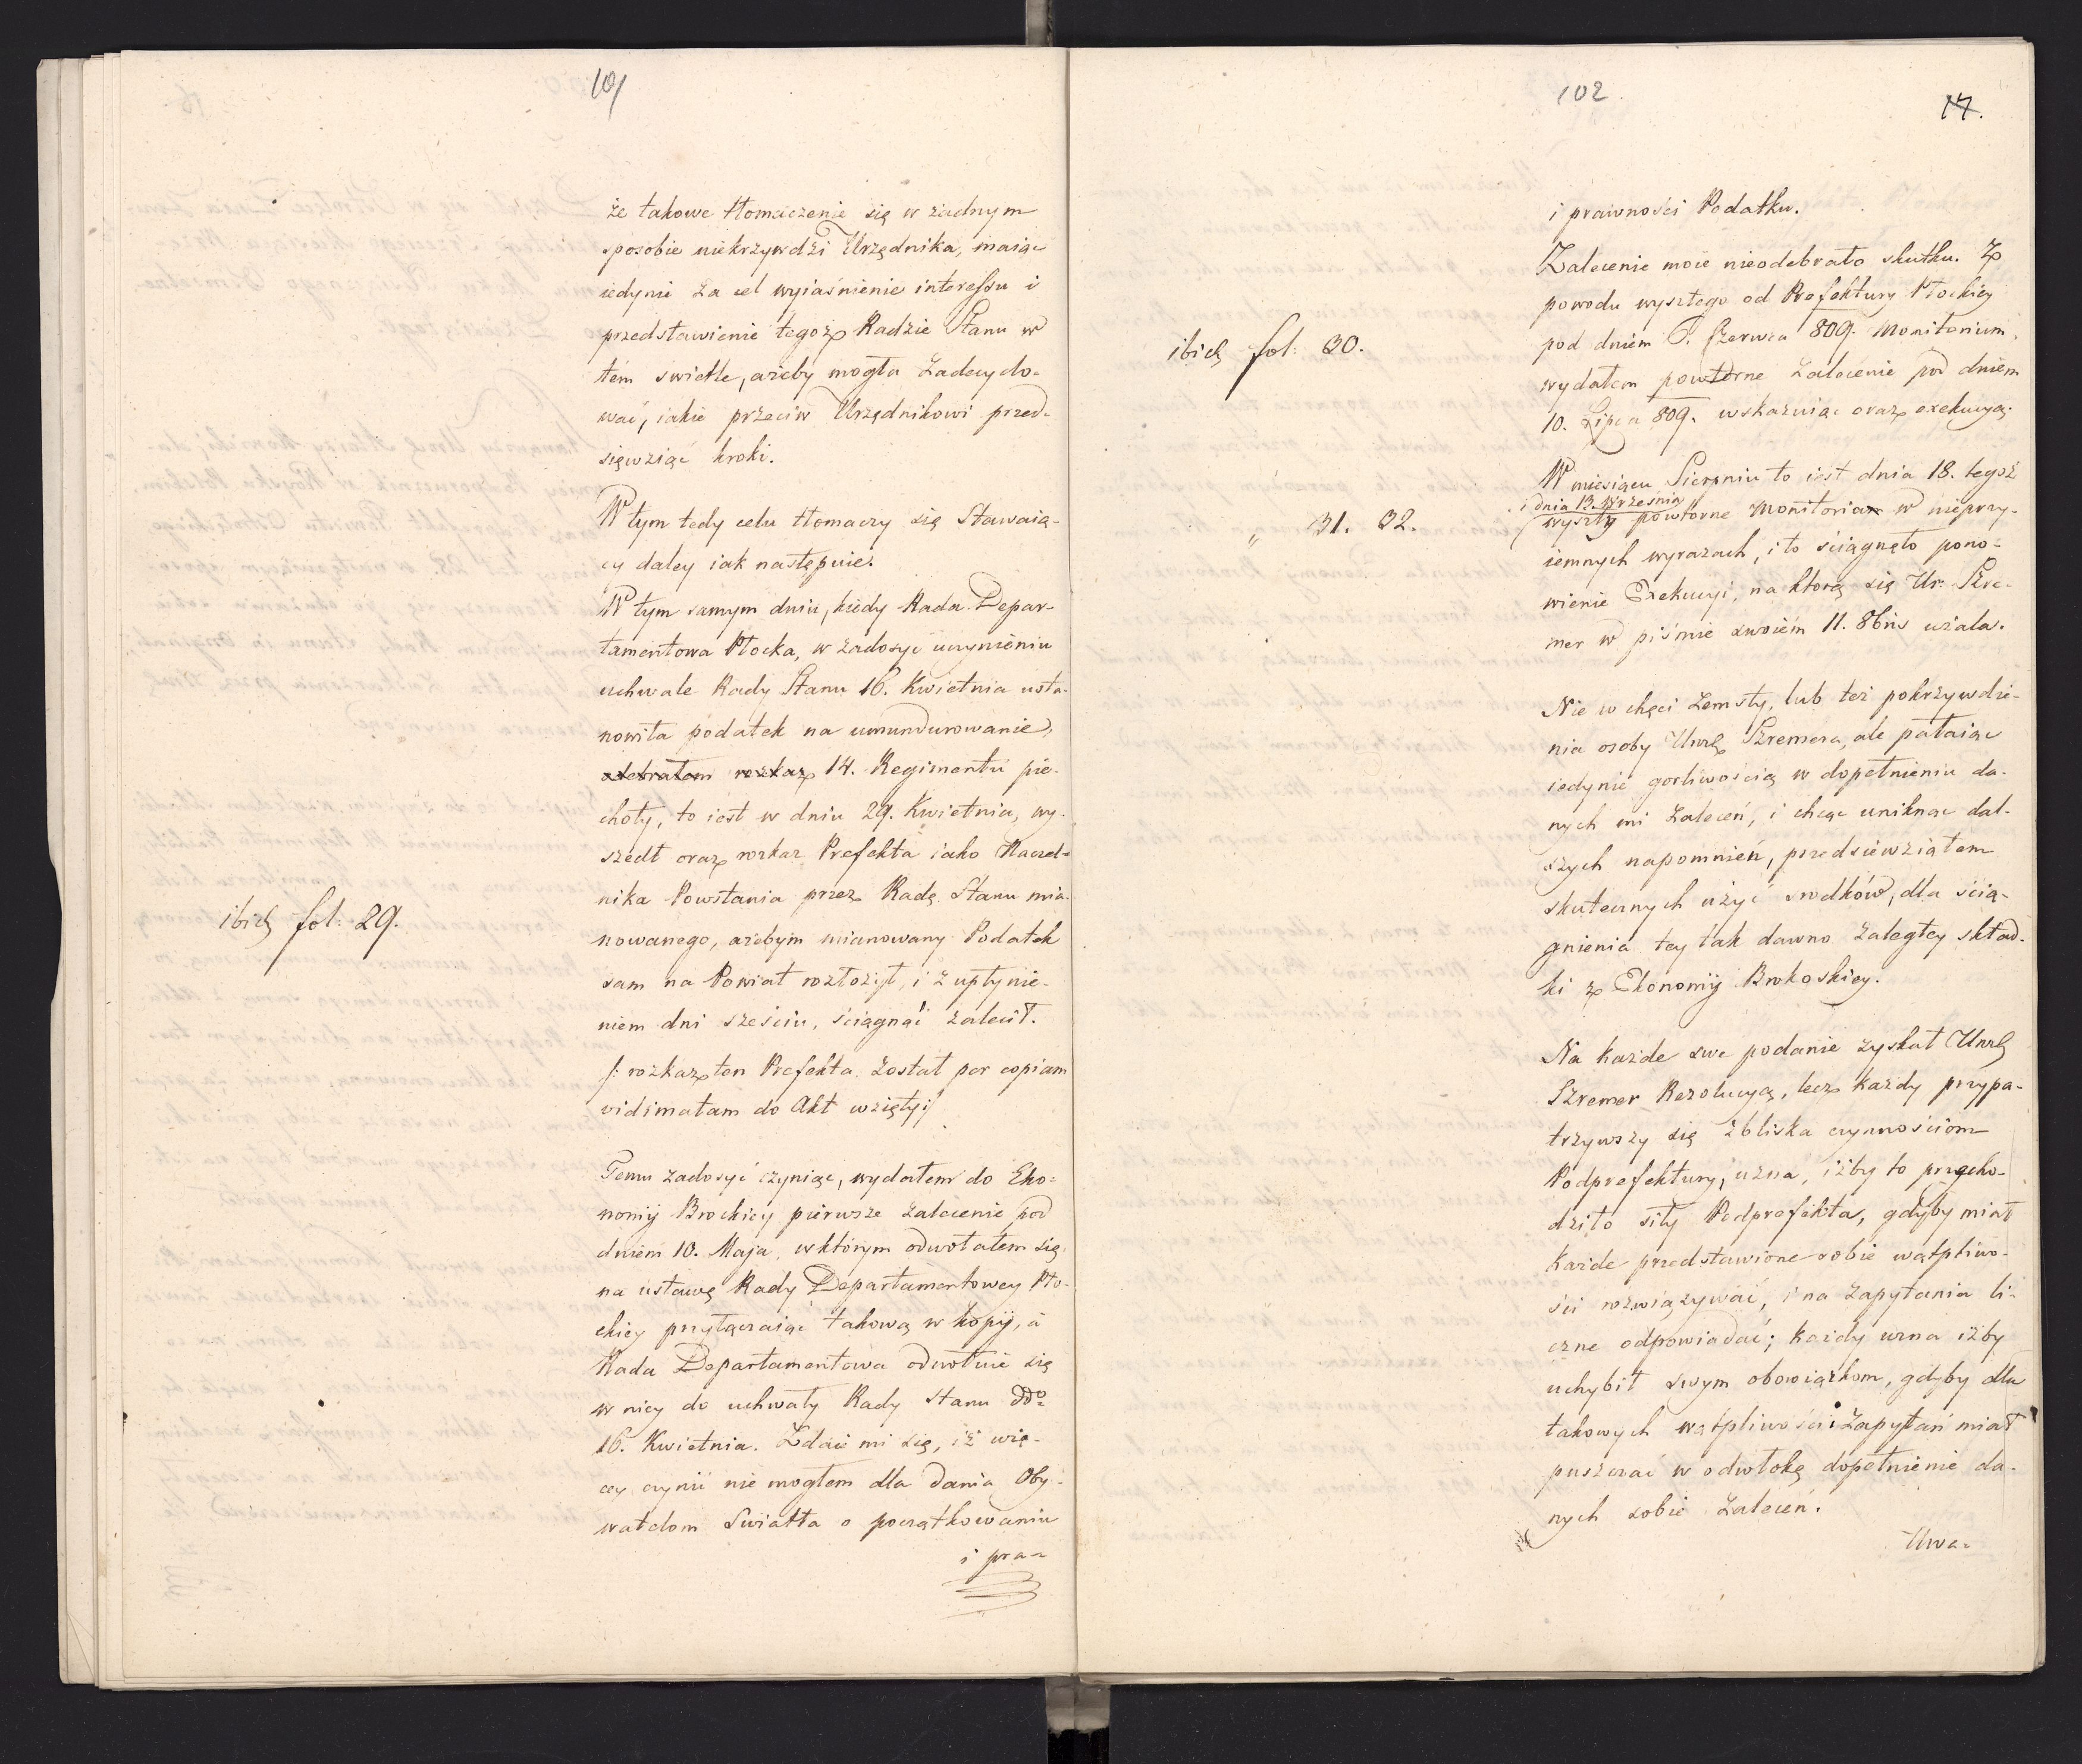 101
że takowe tłomaczenie się w żadnym
sposobie niekrzywdzi Urzędnika, maiąc
iedynie za cel wyiaśnienie interessu i
przedstawienie tegoż Radzie Stanu w
tém swietle, ażeby mogła zadecydo-
wać, iakie przeciw Urzędnikowi przed-
sięwziąć kroki.
W tym tedy celu tłomaczy się Stawaią-
cy daley iak następuie.
W tym samym dniu, kiedy Rada Depar-
tamentowa Płocka, w zadosyć uczynieniu
uchwale Rady Stanu 16. Kwietnia usta-
nowiła podatek na umundurowanie,
odebrałem rozkaz 14. Regimentu pie-
choty, to iest w dniu 29. Kwietnia, wy-
szedł oraz rozkaz Prefekta iako Naczel-
nika Powstania przez Radę Stanu mia-
ibid fol: 29.
nowanego, ażebym mianowany Podatek
sam na Powiat rozłożył, i z upłynie-
niem dni sześciu, ściągnąć zalecił.
/: rozkaz ten Prefekta został per copiam
vidimatam do Akt wzięty :/
Temu zadosyć czyniąc, wydałem do Eko-
nomij Brockiey pierwsze zalecenie pod
dniem 10. Maja, w którym odwołałem się
na ustawę Rady Departamentowey Pło-
ckiey przyłączaiąc takową w kopij, a
Rada Departamentowa odwołuie się
w niey do uchwały Rady Stanu ddo
16. Kwietnia. Zdaie mi się, iż wię-
cey czynić nie mogłem dla dania Oby-
watelom Swiatła o początkowaniu
i pra-
102
17.
i prawności Podatku.
Zalecenie moie nieodebrało skutku. Z
powodu wyszłego od Prefektury Płockiey
ibid fol: 30.
pod dniem Czerwca 809. Monitorium,
wydałem powtórne zalecenie pod dniem
10. Lipca 809. wskazuiąc oraz exekucyą.
W miesiącu Sierpniu to iest dnia 18. tegoż
i dnia 13. Września
" 31. 32.
wyszły powtórne Monitoria w nieprzy-
iemnych wyrazach, i to ściągnęło pono-
wienie Exekucyi, na którą się Ur: Szre-
mer w piśmie swoiém 11. 8bris użala.
Nie w chęci zemsty, lub też pokrzywdze-
nia osoby Urzd Szremera, ale pałaiąc
iedynie gorliwością w dopełnieniu da-
nych mi zaleceń, i chcąc uniknąć dal-
szych napomnień, przedsiewziąłem
skutecznych użyć srodków, dla ścią-
gnienia tey tak dawno zaległey skład-
ki z Ekonomij Brokoskiey.
Na każde swe podanie zyskał Urzd
Szremer Rezolucyą, lecz każdy przypa-
trzywszy się zbliska czynnościom
Podprefektury, uzna, iżby to przecho-
dziło siły Podprefekta, gdyby miał
każde przedstawione sobie wątpliwo-
ści rozwiązywać, i na zapytania li-
czne odpowiadać; każdy uzna iżby
uchybił swym obowiązkom, gdyby dla
takowych wątpliwości i zapytań miał
puszczać w odwłokę dopełnienie da-
nych sobie zaleceń.
Uwa-